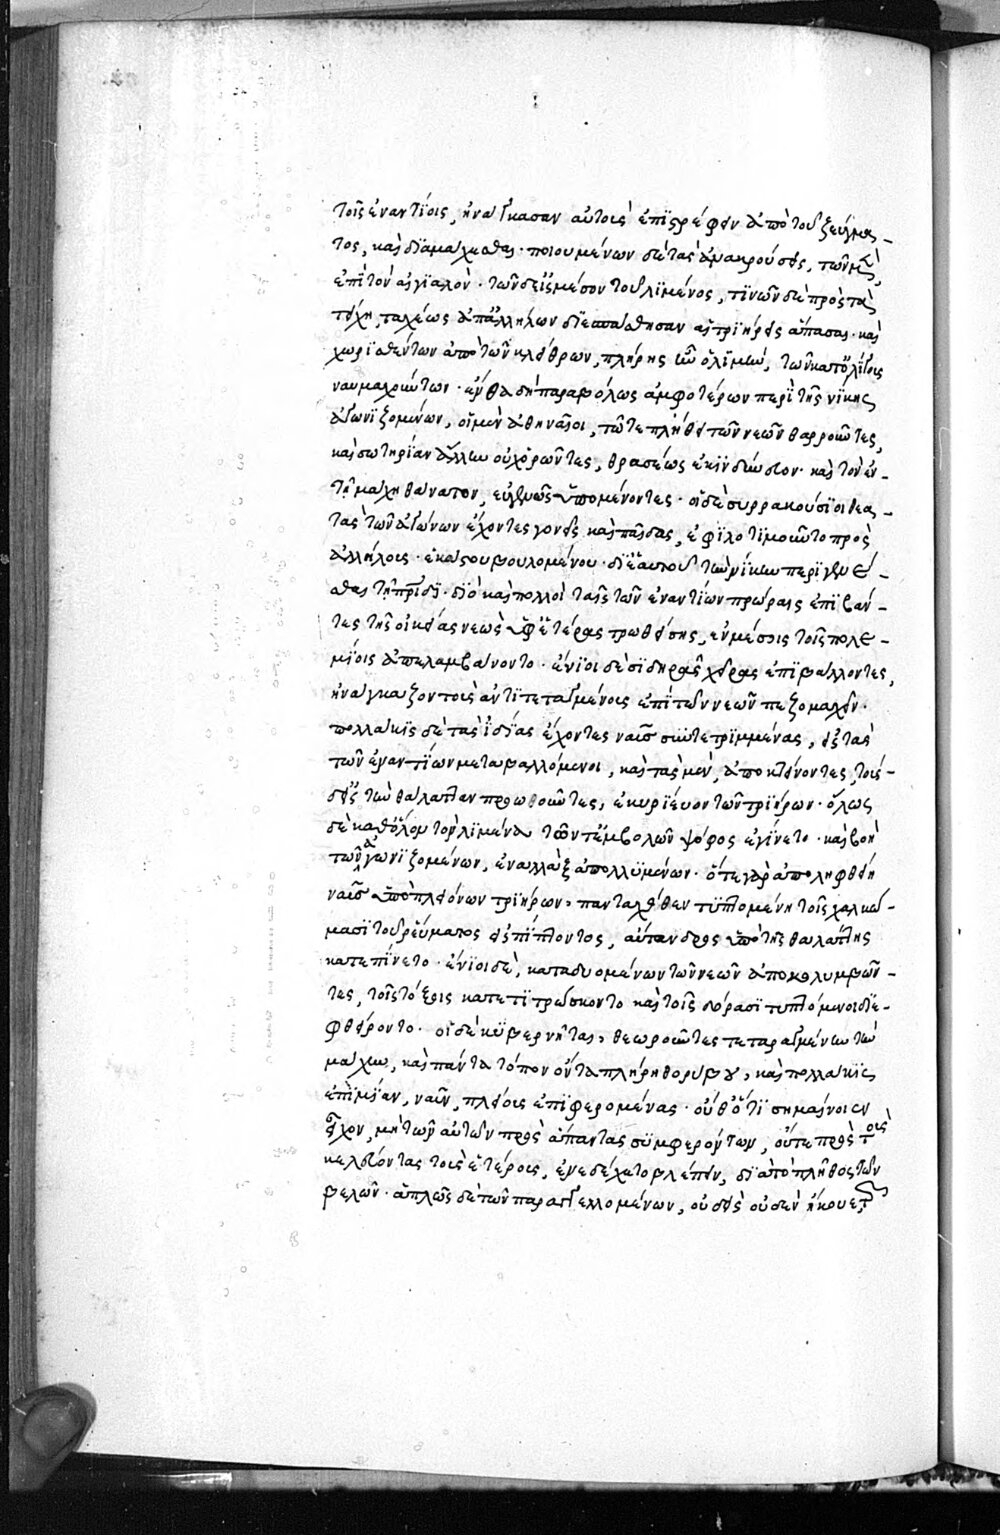 τοῖς ἐναντίοις, ἠνάγκασαν αὐτοὺς ἐπιστρέφειν ἀπὸ τοῦ ζεύγμα-
τος, καὶ διαμάχεσθαι· ποιουμένων δὲ τὰς ἀνακρούσεις, τῶν μὲν
ἐπὶ τὸν αἰγιαλὸν· τῶν δὲ εἰς μέσον τοῦ λιμένος, τινῶν δὲ πρὸς τὰ
τείχη, ταχέως ἀπ' ἀλλήλων διεσπάσθησαν αἱ τριήρεις ἅπασαι· καὶ
χωρισθέντων ἀπὸ τῶν κλείθρων, πλήρης ἦν ὁ λιμὴν, τῶν κατ' ὀλίγους
ναυμαχούντων· ἔνθα δὴ παραβόλως ἀμφοτέρων περὶ τῆς νίκης
ἀγωνιζομένων, οἱ μὲν ἀθηναῖοι, τῶ τε πλήθει τῶν νεῶν θαρροῦντες,
καὶ σωτηρίαν ἄλλην οὐχ ὁρῶντες, θρασέως ἐκινδύνευον· καὶ τὸν ἐν
τῆ μάχη θάνατον, εὐγενῶς ὑπομένοντες· οἱ δὲ συρρακούσιοι θεα-
τὰς τῶν ἀγώνων ἔχοντες γονεῖς καὶ παῖδας, ἐφιλοτιμοῦντο πρὸς
ἀλλήλους· ἑκάστου βουλομένου· δι' ἑαυτοῦ τὴν νίκην περιγενέ-
σθαι τῆ πατρίδι· διὸ καὶ πολλοὶ ταῖς τῶν ἐναντίων πρώραις ἐπιβάν-
τες τῆς οἰκείας νεὼς ὑφ' ἑτέρας τρωθείσης, ἐν μέσοις τοῖς πολε-
μίοις ἀπελαμβάνοντο· ἔνιοι δὲ σιδηρᾶς χεῖρας ἐπιβάλλοντες,
ἠνάγκαζον τοὺς ἀντιτεταγμένους ἐπὶ τῶν νεῶν πεζομαχεῖν·
πολλάκις δὲ τὰς ἰδίας ἔχοντες ναῦς συντετριμμένας, εἰς τὰς
τῶν ἐναντίων μεταβαλλόμενοι, καὶ τὰς μὲν, ἀποκτείνοντες, τοὺς
δ' εἰς τὴν θάλατταν προωθοῦντες, ἐκυρίευον τῶν τριήρων· ὅλως
δὲ καθ' ὅλον τὸν λιμένα τῶν τ' ἐμβολῶν ψόφος ἐγίνετο· καὶ βοὴ
τῶν ἀγωνιζομένων, ἐναλλὰξ ἀπολλυμένων· ὅτε γὰρ ἀποληφθείη
ναῦς ὑπὸ πλειόνων τριήρων, πανταχόθεν τυπτομένη τοῖς χαλκώ-
μασι τοῦ ῥεύματος εἰσπίπτοντος, αὔτανδρος ὑπὸ τῆς θαλάττης
κατεπίνετο· ἔνιοι δὲ, καταδυομένων τῶν νεῶν ἀποκολυμβῶν-
τες, τοῖς τόξοις κατετιτρώσκοντο καὶ τοῖς δόρασι τυπτόμενοι διε-
φθείροντο· οἱ δὲ κυβερνῆται, θεωροῦντες τεταραγμένην τὴν
μάχην, καὶ πάντα τόπον ὄντα πλήρη θορύβου, καὶ πολλάκις
ἐπὶ μίαν, ναῦν, πλείους ἐπιφερομένας· οὔθ' ὅτι σημαίνοιεν
εἶχον, μὴ τῶν αὐτῶν πρὸς ἅπαντας συμφερόντων, οὔτε πρὸς τοὺς
κελεύοντας τοὺς ἑτέρους, ἐνεδέχετο βλέπειν, διὰ τὸ πλῆθος τῶν
βελῶν· ἁπλῶς δὲ τῶν παραγγελλομένων, οὐδεὶς οὐδὲν ἤκουε,